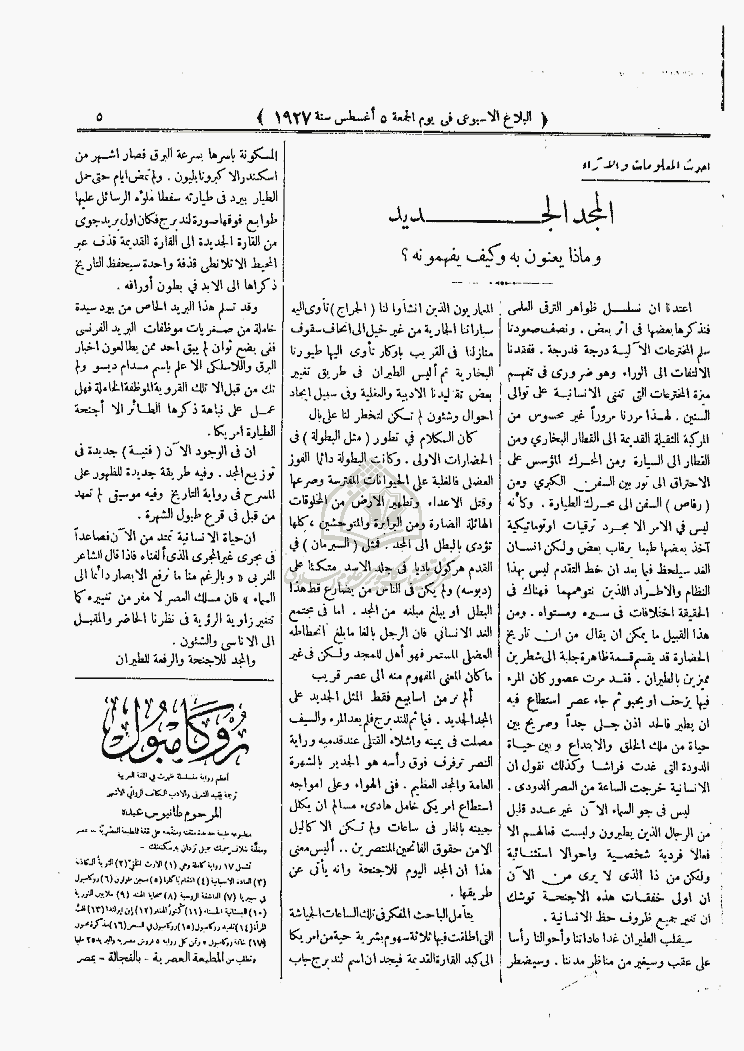 ﴿ البلاغ الاسبوعى فى يوم الجمعة ٥ أغسطس سنة ١٩٢٧ ﴾
٥
احدث المعلومات والآراء
المجد الجـــديد
وماذا يعنون به وكيف يفهمونه ؟
اعتدنا ان نسلسل ظواهر الترقى العلمى
فنذكرها بعضها فى اثر بعض . ونصف صعودنا
سلم المخترعات الآلية درجة فدرجة . ففقدنا
الالتفات الى الوراء وهو ضرورى فى تفهم
ميزة المخترعات التى تغنى الانسانية على توالى
السنين . لهذا مررنا مروراً غير محسوس من
المركبة الثقيلة القديمة الى القطار البخارى ومن
القطار الى السيارة ومن المحرك المؤسس على
الاحتراق الى نوربين السفن الكبرى ومن
( رقاص ) السفن الى محرك الطيارة . وكأنه
ليس فى الامر الا مجرد ترقيات اوتوماتيكية
آخذ بعضها طبعا برقاب بعض ولكن انسان
الغد سيلحظ فيما بعد ان خط التقدم ليس بهذا
النظام والاطراد اللذين نتوهمهما فهناك فى
الحقيقة اختلافات فى سيره ومستواه . ومن
هذا القبيل ما يمكن ان يقال من ان تاريخ
الحضارة قد يقسم قسمة ظاهرة جلية الى شطرين
مميزين بالطيران . فقد مرت عصور كان المرء
فيها يزحف او يحبو ثم جاء عصر استطاع فيه
ان يطير فالحد اذن جلى جداً وصريح بين
حياة من ملك الخلق والابتداع وبين حياة
الدودة التى غدت فراشا وكذلك نقول ان
الانسانية خرجت الساعة من العصر الدودى .
ليس فى جو السماء الآن غير عدد قليل
من الرجال الذين يطيرون وليست فعالهم الا
فعالا فردية شخصية واحوالا استثنائية
ولكن من ذا الذى لا يرى من الآن
ان اولى خفقات هذه الاجنحة توشك
ان تغير جميع ظروف حظ الانسانية .
سيقلب الطيران غدا عاداتنا وأحوالنا رأسا
على عقب وسيغير من مناظر مدننا . وسيضطر
المعماريون الذين انشأوا لنا ( الجراج ) تأوى اليه
سياراتنا الجارية من غير خيل الى اتحاف سقوف
منازلنا فى القريب باوكار تأوى اليها طيورنا
البخارية ثم أليس الطيران فى طريق تغيير
بعض تقاليدنا الادبية والعقلية وفى سبيل ايجاد
احوال وشئون لم تكن لتخطر لنا على بال
كان الكلام فى تطور ( مثل البطولة ) فى
الحضارات الاولى . وكانت البطولة دائما الفوز
العضلى فالغلبة على الحيوانات المفترسة وصرعها
وقتل الاعداء وتطهير الارض من المخلوقات
الهائلة الضارة ومن البرابرة والمتوحشين ، كلها
تؤدى بالبطل الى المجد . فمثل ( السبرمان ) فى
القدم هركول باديا فى جلد الاسد متكئا على
( دبوسه ) ولم يكن فى الناس من يضارع قط هذا
البطل او يبلغ مبلغه من المجد . اما فى مجتمع
الغد الانسانى فان الرجل بالغا ما بلغ انحطاطه
العضلى المستمر فهو أهل للمجد ولكن فى غير
ما كان المعنى المفهوم منه الى عصر قريب
ألم نر من اسابيع فقط المثل الجديد على
المجد الجديد . فيما تم للندبرج فلم يعد المرء والسيف
مصلت فى يمينه واشلاء القتلى عند قدميه وراية
النصر ترفرف فوق رأسه هو الجدير بالشهرة
العامة والمجد العظيم . فى الهواء وعلى امواجه
استطاع امريكى خامل هادىء مسالم ان يكلل
جبينه بالغار فى ساعات ولم تكن الاكاليل
الا من حقوق الفاتحين المنتصرين .. أليس معنى
هذا ان المجد اليوم للاجنحة وانه يأتى عن
طريقها .
يتأمل الباحث المفكر فى تلك الساعات الجياشة
التى اطلقت فيها ثلاثة سهوم بشرية حية من امريكا
الى كبد القارة القديمة فيجد ان اسم لندبرج جاب
المسكونة باسرها بسرعة البرق فصار اشهر من
اسكندر الاكبر ونابليون . ولم تمض ايام حتى حمل
الطيار بيرد فى طيارته سفطا ملؤه الرسائل عليها
طوابع فوقها صورة لندبرج فكان اول بريد جوى
من القارة الجديدة الى القارة القديمة قذف عبر
المحيط الاتلانطى قذفة واحدة سيحفظ التاريخ
ذكراها الى الابد فى بطون أوراقه .
وقد تسلم هذا البريد الخاص من بيرد سيدة
خاملة من صغريات موظفات البريد الفرنسى
ففى بضع ثوان لم يبق احد ممن يطالعون اخبار
البرق واللاسلكى الا علم باسم مدام ديسو ولم
تك من قبل الا تلك القروية الموظفة الخاملة فهل
عمل على نباهة ذكرها الطائر الا أجنحة
الطيارة امريكا .
ان فى الوجود الآن ( فنية ) جديدة فى
توزيع المجد . وفيه طريقة جديدة للظهور على
المسرح فى رواية التاريخ وفيه موسيقى لم تعهد
من قبل فى قرع طبول الشهرة .
ان حياة الانسانية تمتد من الآن فصاعداً
فى مجرى غير المجرى الذى ألفناه فاذا قال الشاعر
الغربى « وبالرغم منا ما نرفع الابصار دائما الى
السماء » فان مسلك العصر لا مفر من تغييره كما
تتغير زاوية الرؤية فى نظرنا الحاضر والمقبل
الى الاناسى والشئون .
والمجد للاجنحة والرفعة للطيران
روكامبول
أعظم رواية مسلسلة ظهرت فى اللغة العربية
ترجمة فقيد الشرق والادب الكاتب الروائى الاشهر
المرحوم طانيوس عبده
تشمل ١٧ رواية كاملة وهى (١) الارث الخفى (٢) التوبة الكاذبة
(٣) الغادة الاسبانية (٤) انتقام باكارا (٥) سجين طولون (٦) روكامبول
فى سيبريا (٧) العاشقة الروسية (٨) ضحايا الهند (٩) ملايين النورية
(١٠) البستانية الحسناء (١١) كنوز الهند (١٢) ابن ايرلندا (١٣) قلب
المرأة (١٤) (١٥) روكامبول فى السجن (١٦) مذكرة مجنون
(١٧) خاتمة روكامبول وثمن كل رواية ٥ قروش مصرية والبريد ٢٥ مليما
وتطلب من المطبعة العصرية - بالفجالة - بمصر